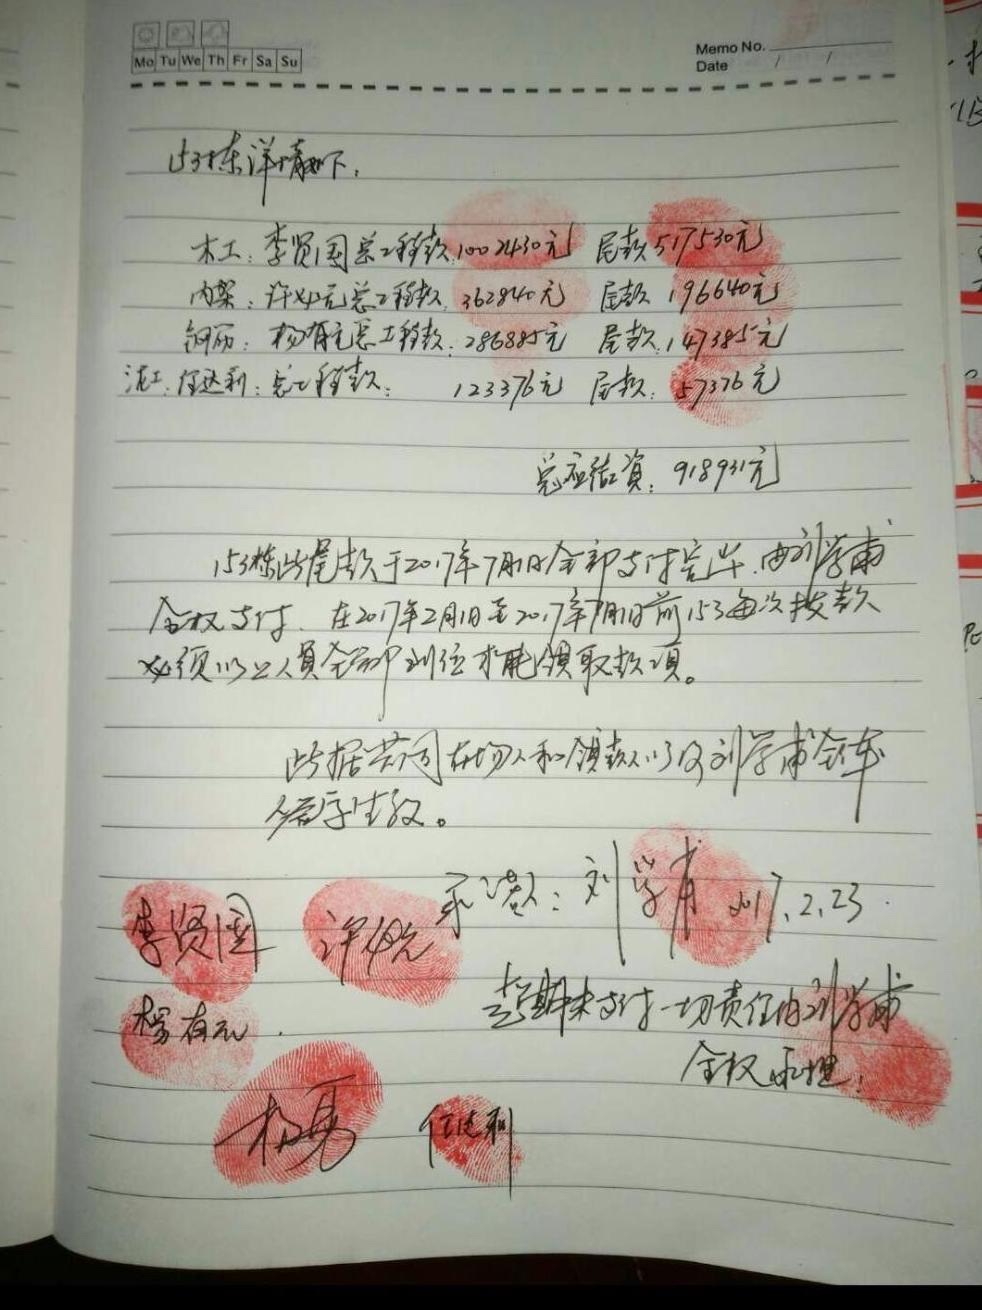 Mo Tu We Th Fr Sa Su
Memo No.
Date / /
153栋详情如下:
木工:李贤国总工程款:1002430元 尾款517530元
内架:许如元总工程款:362840元 尾款196640元
钢筋:杨有元总工程款:286885元 尾款:147385元
泥工:任达利:总工程款:123376元 尾款:57376元
总应结工资:918931元
153栋此尾款于2017年7月1日全部支付完毕.由刘学甫
全权支付.在2017年2月1日至2017年7月1日前153每次拨款
必须以上人员全部到位才能领取款项。
此据共同在场人和领款人以及刘学甫全体
签字生效。
承诺人:刘学甫 2017.2.23.
李贤国 许如元
杨有元
超期未支付一切责任由刘学甫
全权承担.
杨勇 任达利